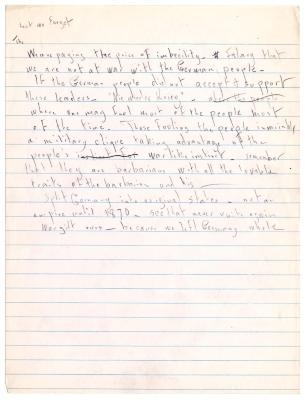 Lest we Forget
The
We are paying the price of imbecility. Saying that
we are not at war with the German people -
If the German people did not accept & support
these leaders -
where one may fool most of the people most
of the time. Those fooling the people invariably
a military clique taking advantage of the
people's warlike instinct - remember
that they are barbarians with all the lovable
traits of the barbarian and his -
Split Germany into original states - not an
empire until 1870 - see that never unite again
We right over - because we left Germany whole